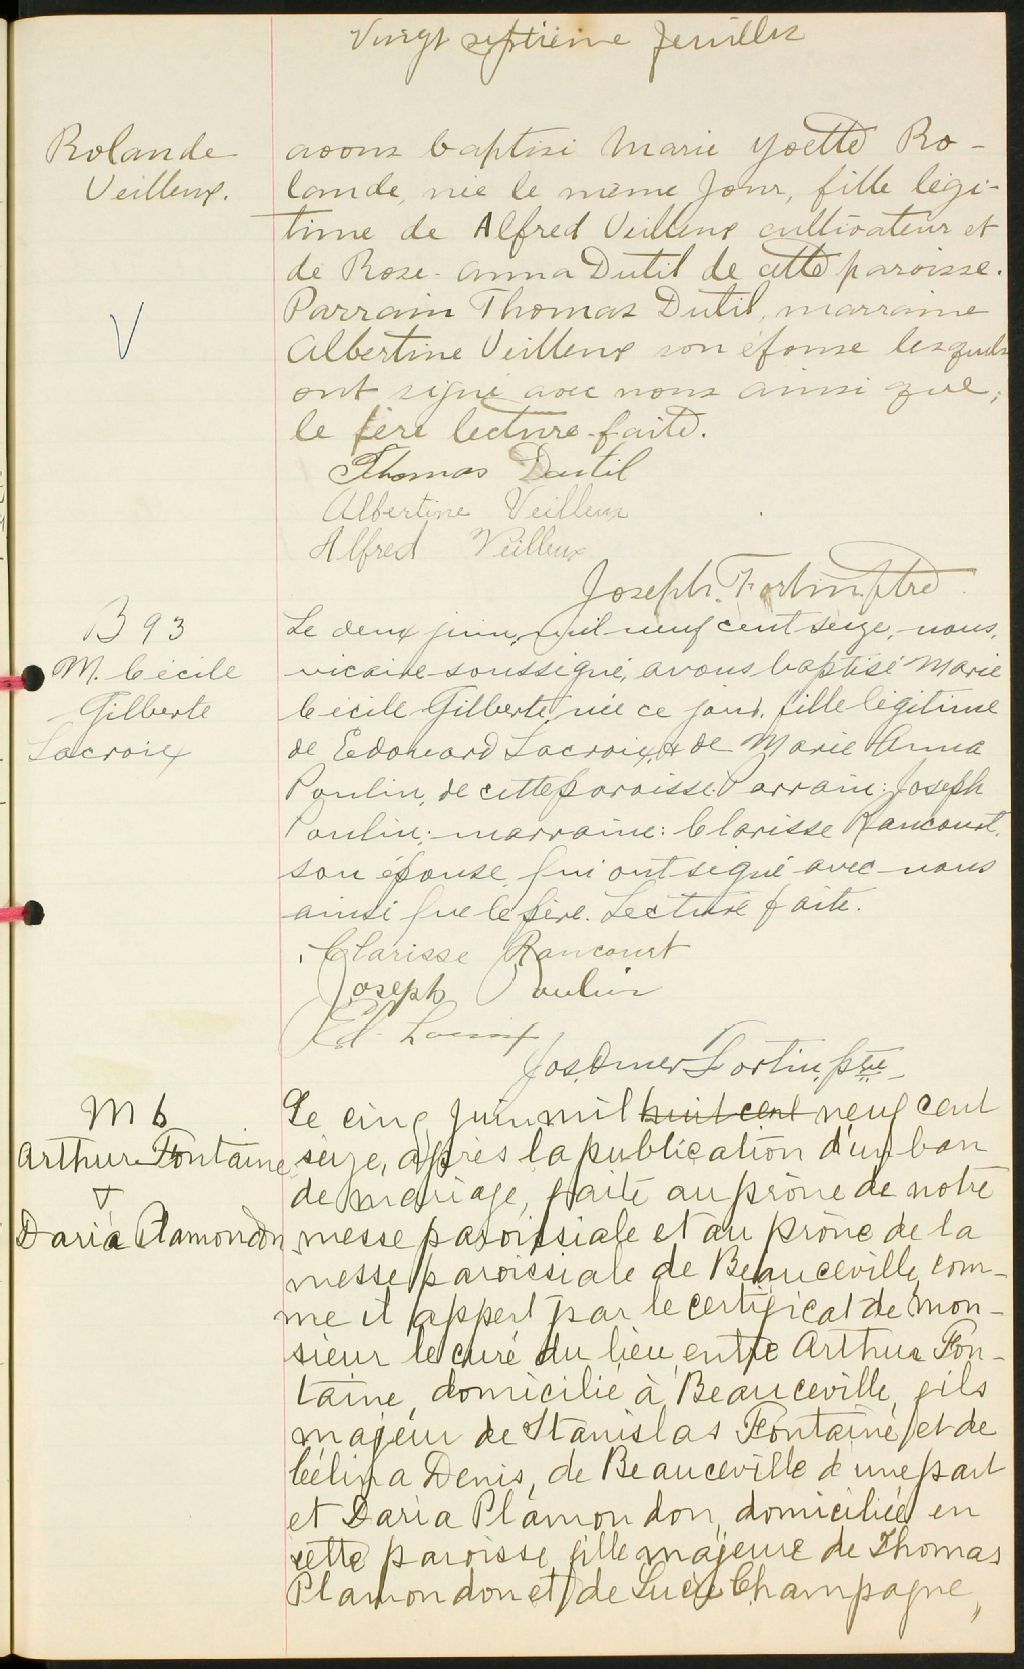 Vingt septième feuillet
Rolande
Veilleux.
avons baptisé Marie Yvette Ro-
lande, née le même jour, fille légi-
time de Alfred Veilleux cultivateur et
de Rose-Anna Dutil de cette paroisse.
Parrain Thomas Dutil, marraine
Albertine Veilleux son épouse lesquels
ont signé avec nous ainsi que,
le père lecture faite.
V
Thomas Dutil
Albertine Veilleux
Alfred Veilleux
Joseph. Fortin. Ptre
B 93
M. Cécile
Gilberte
Lacroix
Le deux juin, mil neuf cent seize, nous,
vicaire soussigné, avons baptisé Marie
Cécile Gilberte, née ce jour, fille légitime
de Edouard Lacroix, & de Marie Anna
Poulin, de cette paroisse. Parrain: Joseph
Poulin; marraine: Clarisse Rancourt,
son épouse qui ont signé avec nous
ainsi que le père. Lecture faite.
Clarisse Rancourt
Joseph Poulin
Ed. Lacroix
Jos. Omer Fortin, ptre
M 6
Arthur Fontaine
&
Daria Plamondon
Le cinq juin mil huit cent neuf cent
seize, après la publication d'un ban
de mariage, faite au prône de notre
messe paroissiale et au prône de la
messe paroissiale de Beauceville, com-
me il appert par le certificat de mon-
sieur le curé du lieu, entre Arthur Fon-
taine, domicilié à Beauceville, fils
majeur de Stanislas Fontaine, et de
Célina Denis, de Beauceville d'une part
et Daria Plamondon, domiciliée en
cette paroisse, fille majeure de Thomas
Plamondon et de Lucie Champagne,